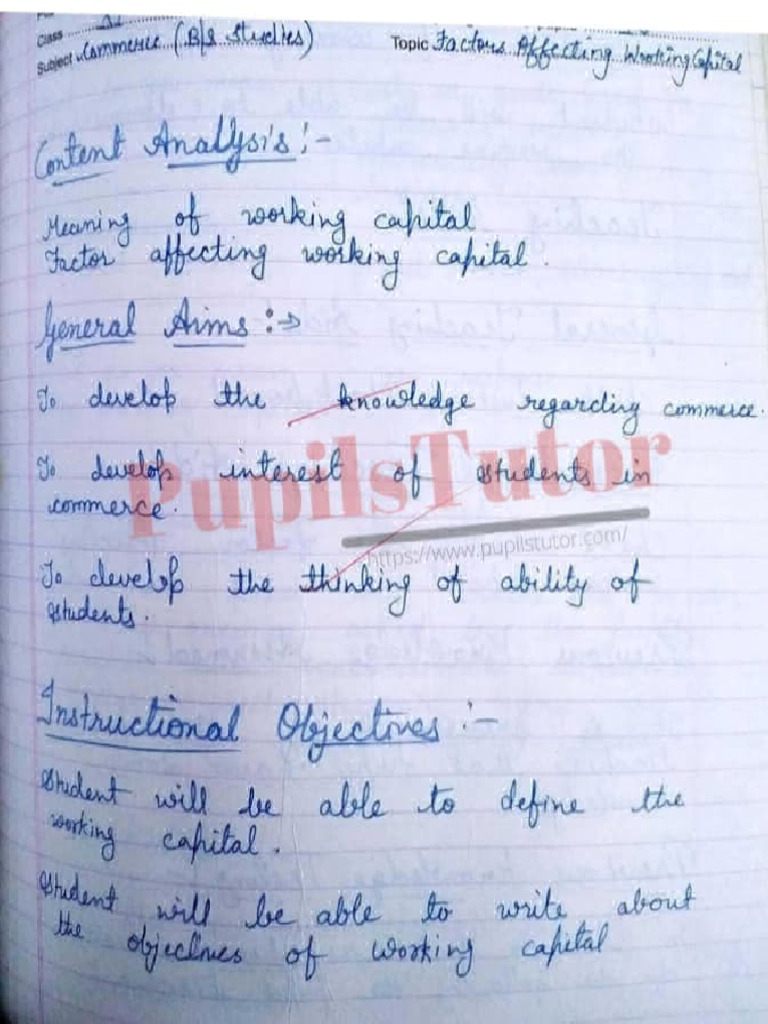 Class
Subject Commerce (B/S Studies) Topic Factors Affecting Working Capital
Content Analysis :-
Meaning of working capital
Factor affecting working capital .
General Aims :->
To develop the knowledge regarding commerce.
To develop interest of students in
commerce.
PupilsTutor
https://www.pupilstutor.com/
To develop the thinking of ability of
students.
Instructional Objectives :-
Student will be able to define the
working capital .
Student will be able to write about
the objectives of working capital